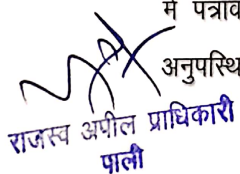 में पत्राव
अनुपस्थि
राजस्व अपील प्राधिकारी
पाली